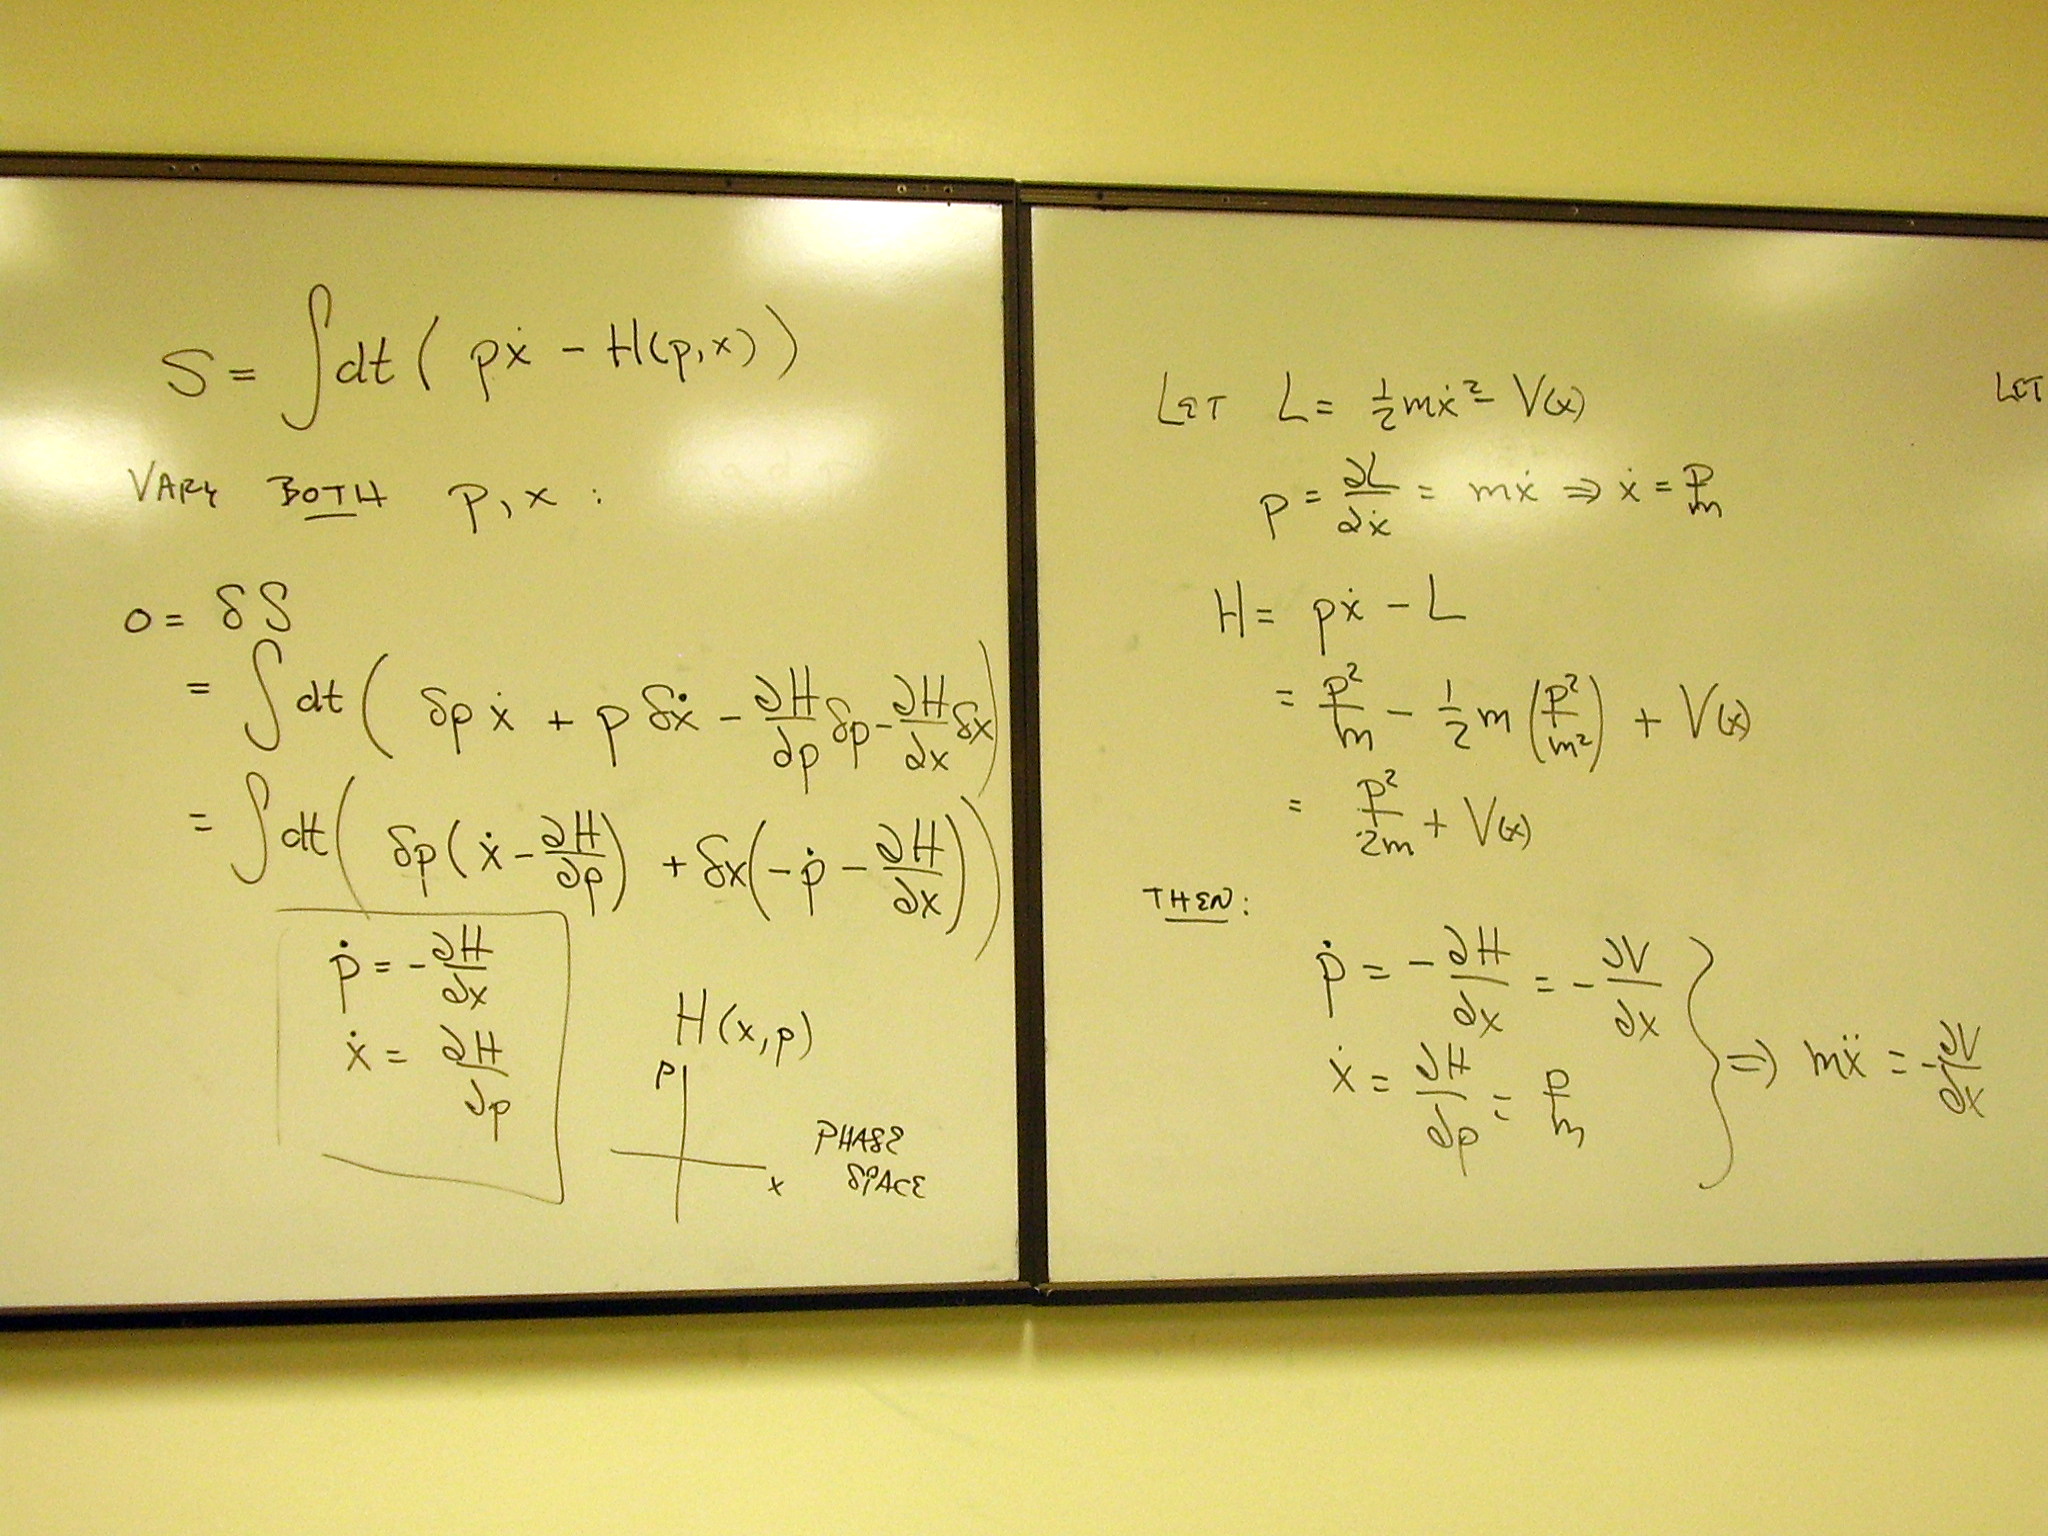 S = ∫dt ( pẋ − H(p,x) )
VARY BOTH p, x :
0 = δS
= ∫dt ( δp ẋ + p δẋ − ∂H/∂p δp − ∂H/∂x δx )
= ∫dt ( δp ( ẋ − ∂H/∂p ) + δx ( −ṗ − ∂H/∂x ) )
ṗ = − ∂H/∂x
ẋ = ∂H/∂p
H(x,p)
p
x
PHASE
SPACE
LET L = ½mẋ² − V(x)
p = ∂L/∂ẋ = mẋ ⇒ ẋ = p/m
H = pẋ − L
= p²/m − ½m (p²/m²) + V(x)
= p²/2m + V(x)
THEN:
ṗ = − ∂H/∂x = − ∂V/∂x
ẋ = ∂H/∂p = p/m
} ⇒ mẍ = − ∂V/∂x
LET